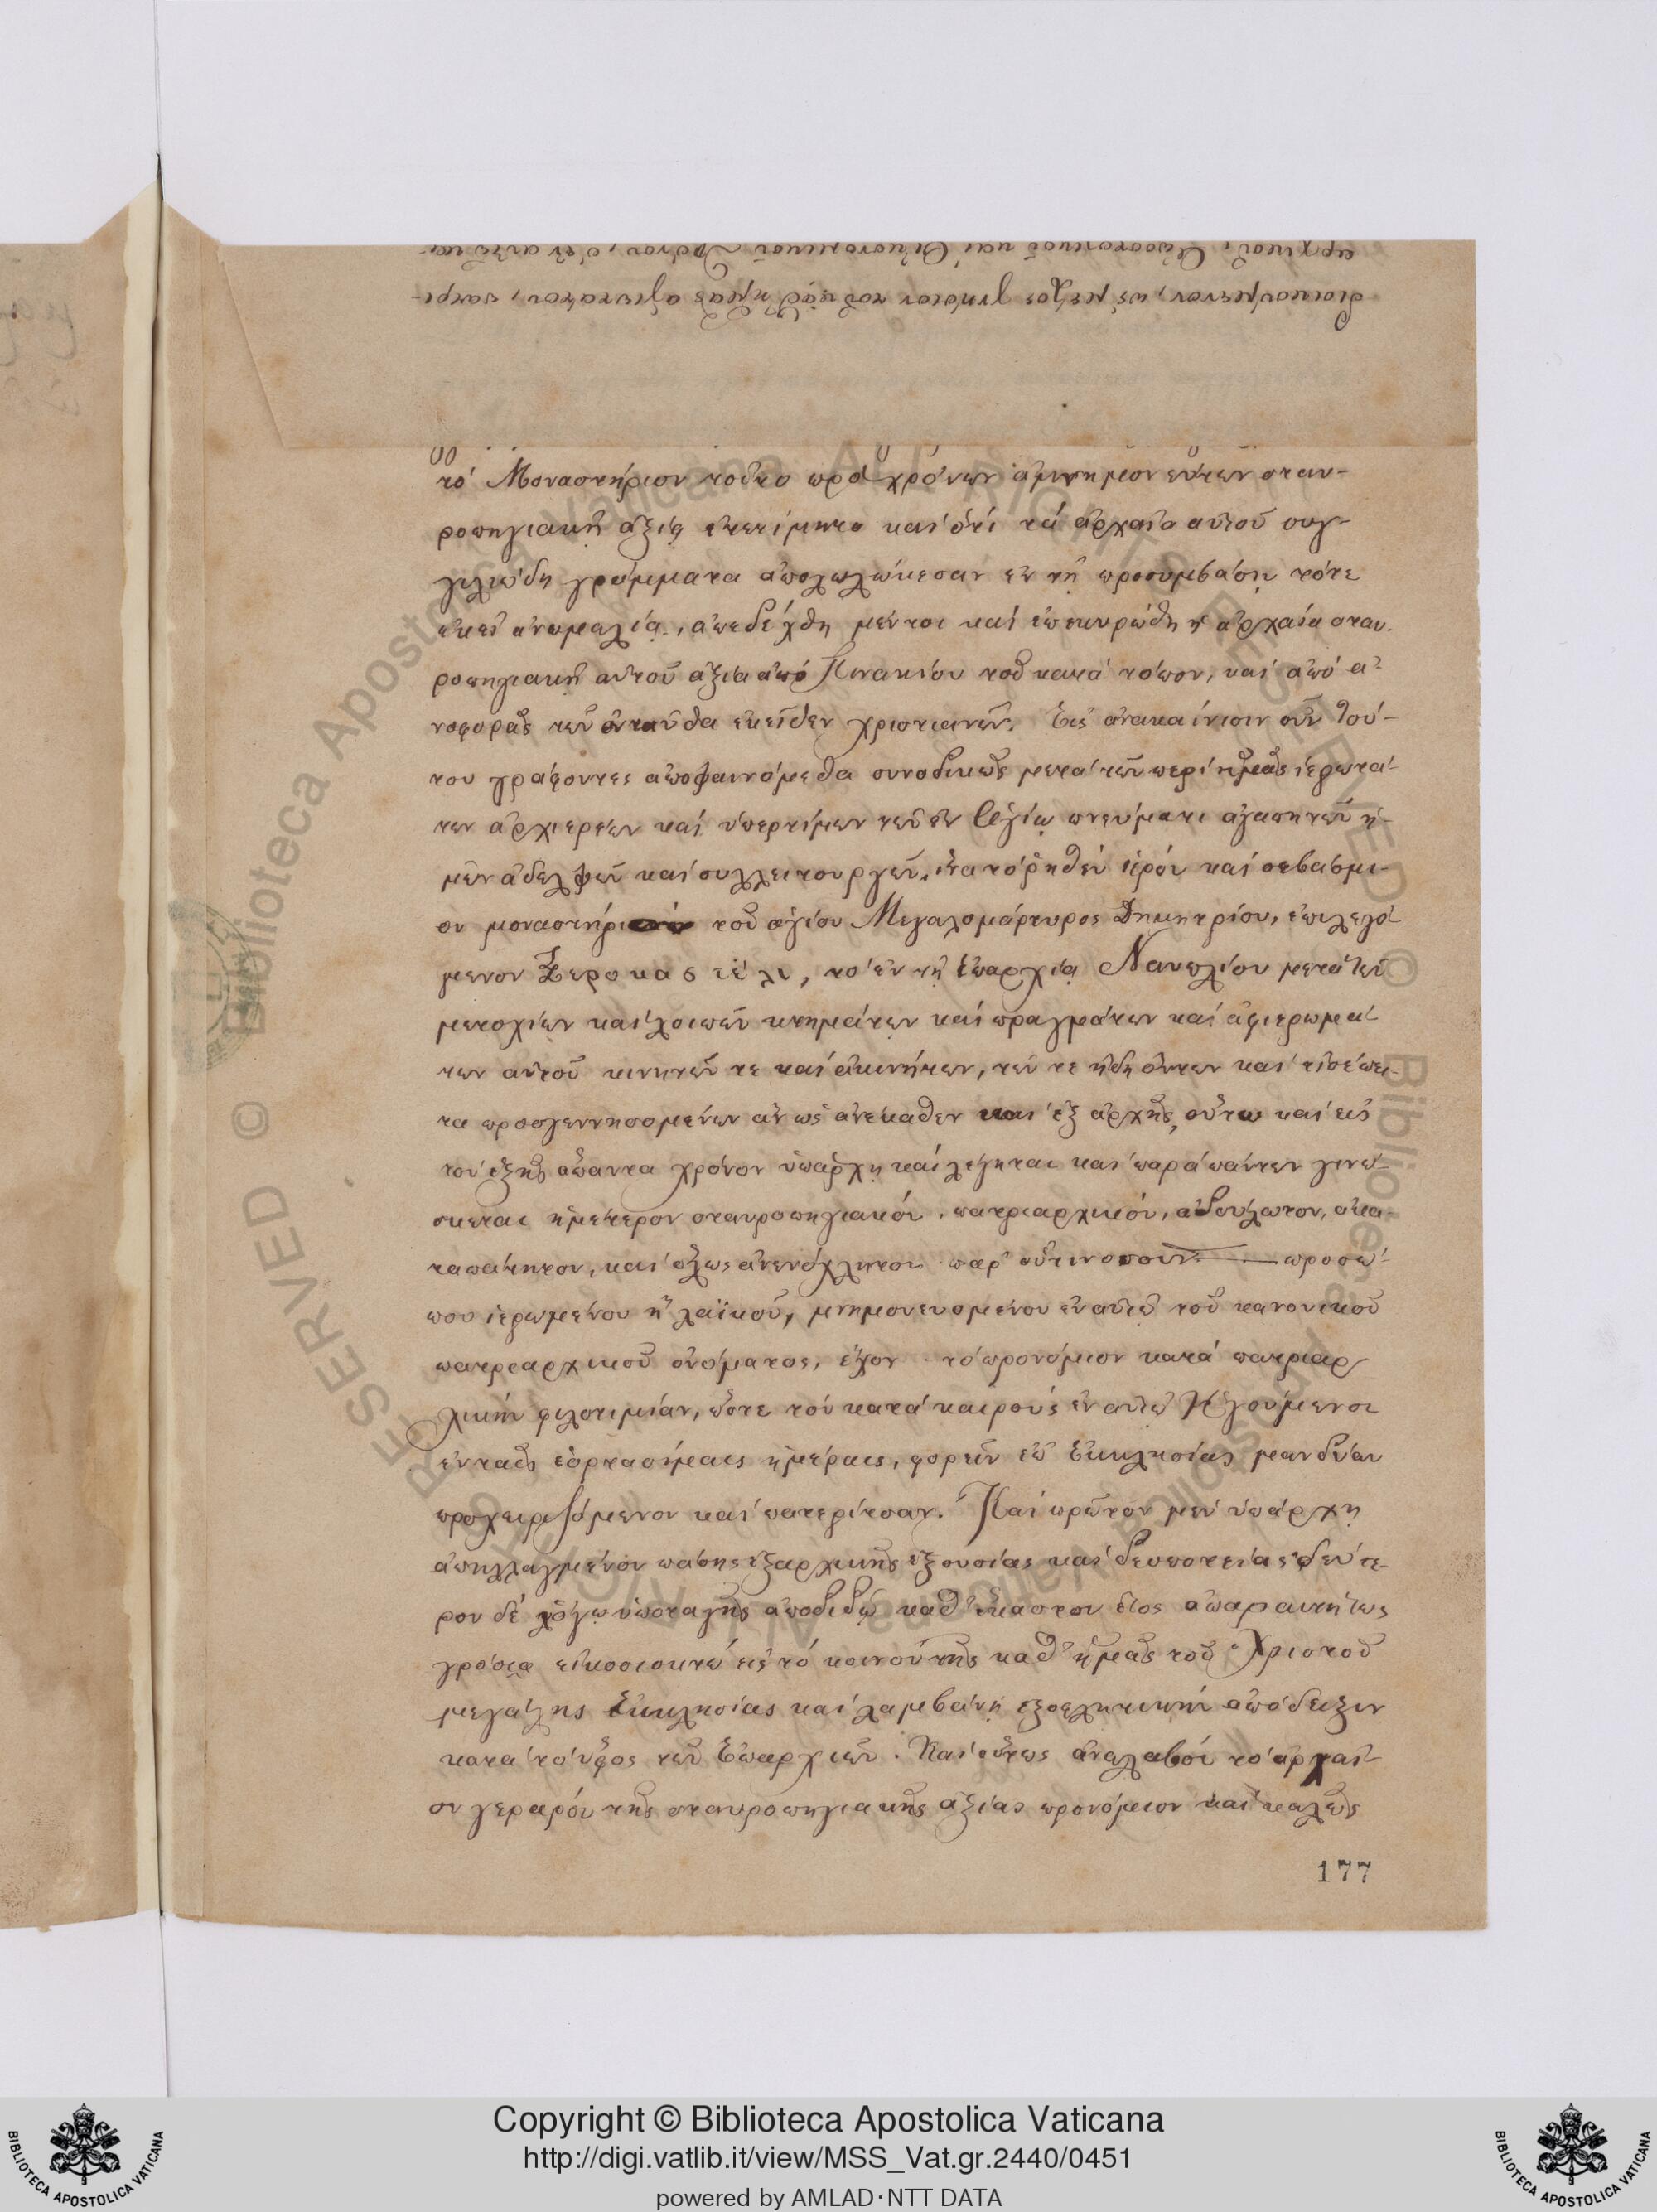 διοικούμενον, ὡς μέλος γνήσιον τοῦ καθ' ἡμᾶς ἁγιωτάτου, πατρι-
αρχικοῦ, Ἀποστολικοῦ καὶ Οἰκουμενικοῦ Θρόνου,
τό Μοναστήριον τοῦτο πρό χρόνων ἀμνημονεύτων σταυ-
ροπηγιακῇ ἀξίᾳ ἐτετίμητο καί ὅτι τά ἀρχαῖα αὐτοῦ συγ-
γιλιώδη γράμματα ἀπολωλώκεσαν ἐν τῇ προσυμβάσῃ τότε
ἐκεῖ ἀνωμαλίᾳ, ἀπεδείχθη μέντοι καί ἐπεκυρώθη ἡ ἀρχαία σταυ-
ροπηγιακή αὐτοῦ ἀξία ἀπό Πινακίου τοῦ κατά τόπον, καί ἀπό ἀ-
ναφορᾶς τῶν ἐνταῦθα ἐκεῖθεν χριστιανῶν. Εἰς ἀνακαίνισιν οὖν τού-
του γράφοντες ἀποφαινόμεθα συνοδικῶς μετά τῶν περί ἡμᾶς ἱερωτά-
των ἀρχιερέων καί ὑπερτίμων τῶν ἐν Ἁγίῳ πνεύματι ἀγαπητῶν ἡ-
μῶν ἀδελφῶν καί συλλειτουργῶν, ἵνα τό ῥηθέν ἱερόν καί σεβάσμι-
ον μοναστήριον τοῦ ἁγίου Μεγαλομάρτυρος Δημητρίου, ἐπιλεγό-
μενον Ξεροκαστέλι, τό ἐν τῇ Ἐπαρχίᾳ Ναυπλίου μετά τῶν
μετοχίων καί λοιπῶν κτημάτων καί πραγμάτων καί ἀφιερωμά-
των αὐτοῦ κινητῶν τε καί ἀκινήτων, τῶν τε ἤδη ὄντων καί εἰσέπει-
τα προσγεννησομένων ἀν ὡς ἀνέκαθεν καί ἐξ ἀρχῆς, οὕτω καί εἰς
τόν ἑξῆς ἅπαντα χρόνον ὑπάρχῃ καί λέγηται καί παρά πάντων γινώ-
σκεται ἡμέτερον σταυροπηγιακόν, πατριαρχικόν, ἀδούλωτον, ἀκα-
ταπάτητον, καί ὅλως ἀνενόχλητον παρ' οὑτινοσοῦν προσώ-
που ἱερωμένου ἤ λαϊκοῦ, μνημονευομένου ἐν αὐτῷ τοῦ κανονικοῦ
πατριαρχικοῦ ὀνόματος, ἔχον τό προνόμιον κατά πατριαρ
χικήν φιλοτιμίαν, ὥστε τόν κατά καιρούς ἐν αὐτῷ Ἡγούμενον
ἐν ταῖς ἑορτασίμαις ἡμέραις, φορεῖν ἐπ' Ἐκκλησίας μανδύαν
προχειριζόμενον καί πατερίτσαν. Καί πρῶτον μέν ὑπάρχῃ
ἀπηλλαγμένον πάσης ἐξαρχικῆς ἐξουσίας καί δεσποτείας δεύτε-
ρον δέ λόγῳ ὑποταγῆς ἀποδιδῷ καθ' ἕκαστον ἔτος ἀπαραιτήτως
γρόσια εἰκοσιοκτώ εἰς τό κοινόν τῆς καθ' ἡμᾶς τοῦ Χριστοῦ
μεγάλης Ἐκκλησίας καί λαμβάνῃ ἐξοφλητικήν ἀπόδειξιν
κατά τό ὕφος τῶν Ἐπαρχιῶν. Καί οὕτως ἀναλαβόν τό ἀρχαῖ-
ον γεραρόν τῆς σταυροπηγιακῆς ἀξίας προνόμιον καί καλῶς
177
Copyright © Biblioteca Apostolica Vaticana
http://digi.vatlib.it/view/MSS_Vat.gr.2440/0451
powered by AMLAD·NTT DATA
BIBLIOTECA APOSTOLICA VATICANA
BIBLIOTECA APOSTOLICA VATICANA